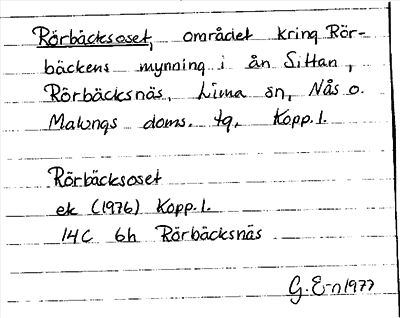 Rörbäcksoset, området kring Rör-
bäckens mynning i ån Sittan,
Rörbäcksnäs, Lima sn, Nås o.
Malungs doms. tg, Kopp. l.
Rörbäcksoset
ek (1976) Kopp. l.
14C 6h Rörbäcksnäs
G. E-n 1977